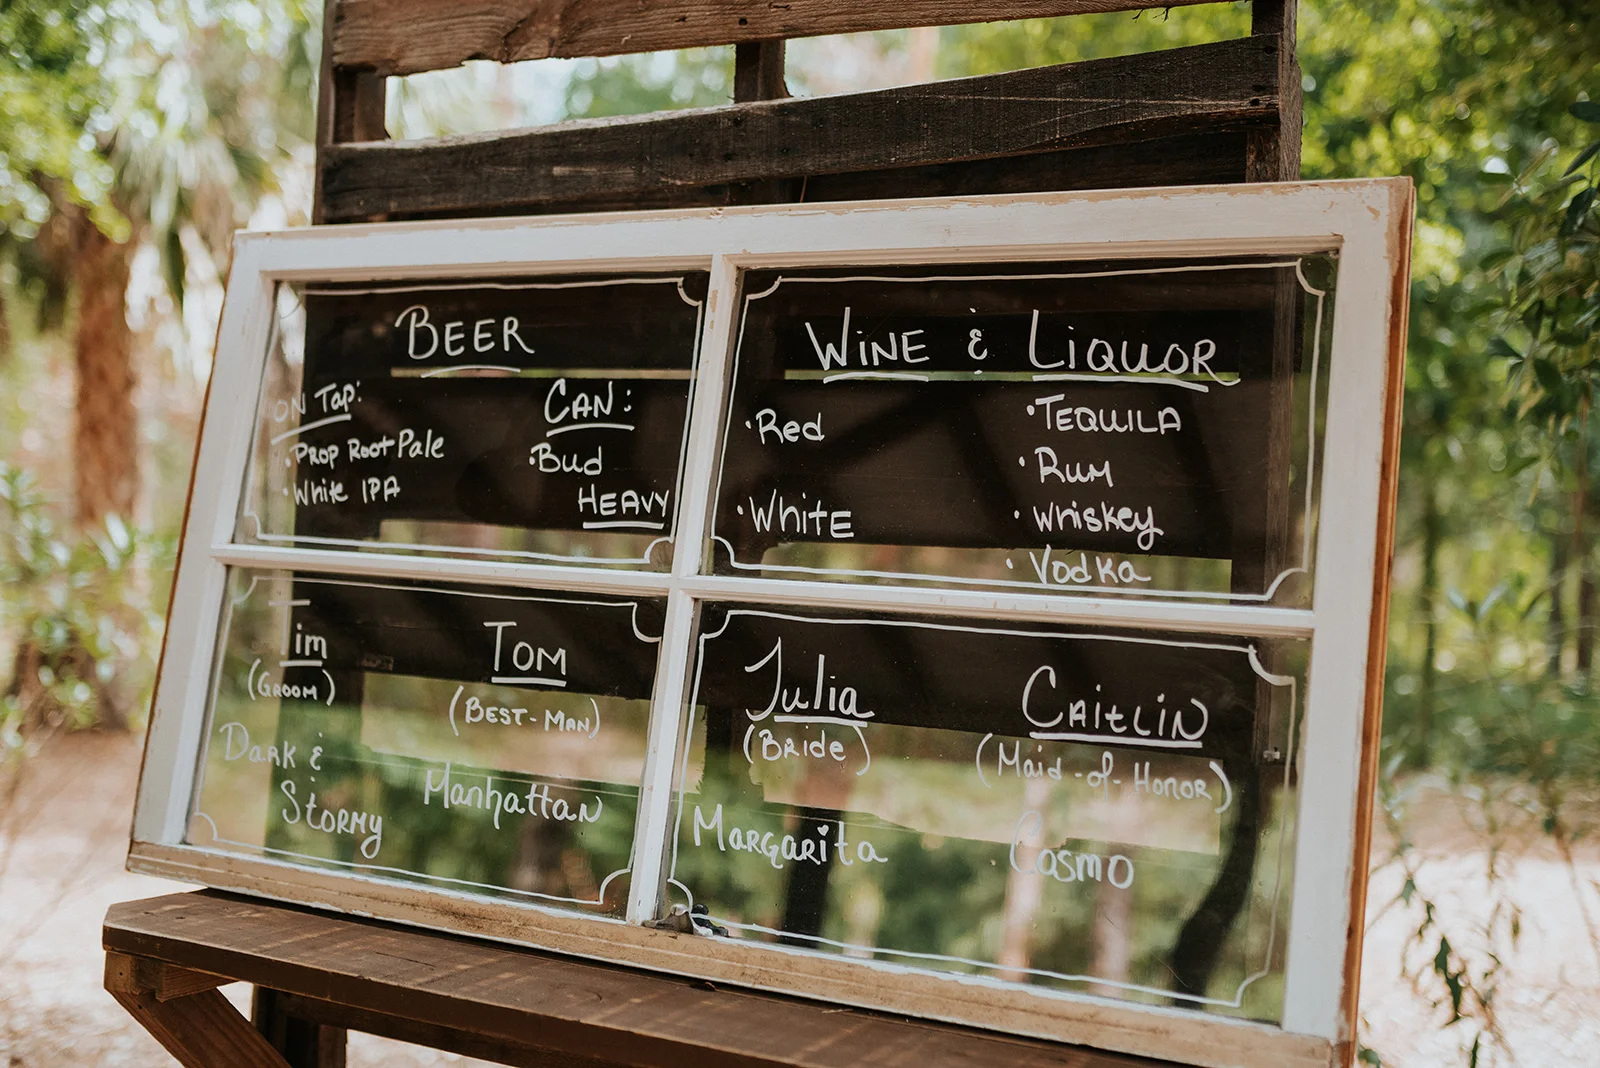 BEER
ON Tap:
• PROP Root Pale
• White IPA
CAN:
• Bud
HEAVY
WINE & LIQUOR
• Red
• WhitE
• TEQUILA
• Rum
• Whiskey
• Vodka
Tim
(GROOM)
Dark &
Stormy
Tom
(BEST-MAN)
Manhattan
Julia
(Bride)
MARGARita
CAitLiN
(Maid-of-Honor)
Cosmo